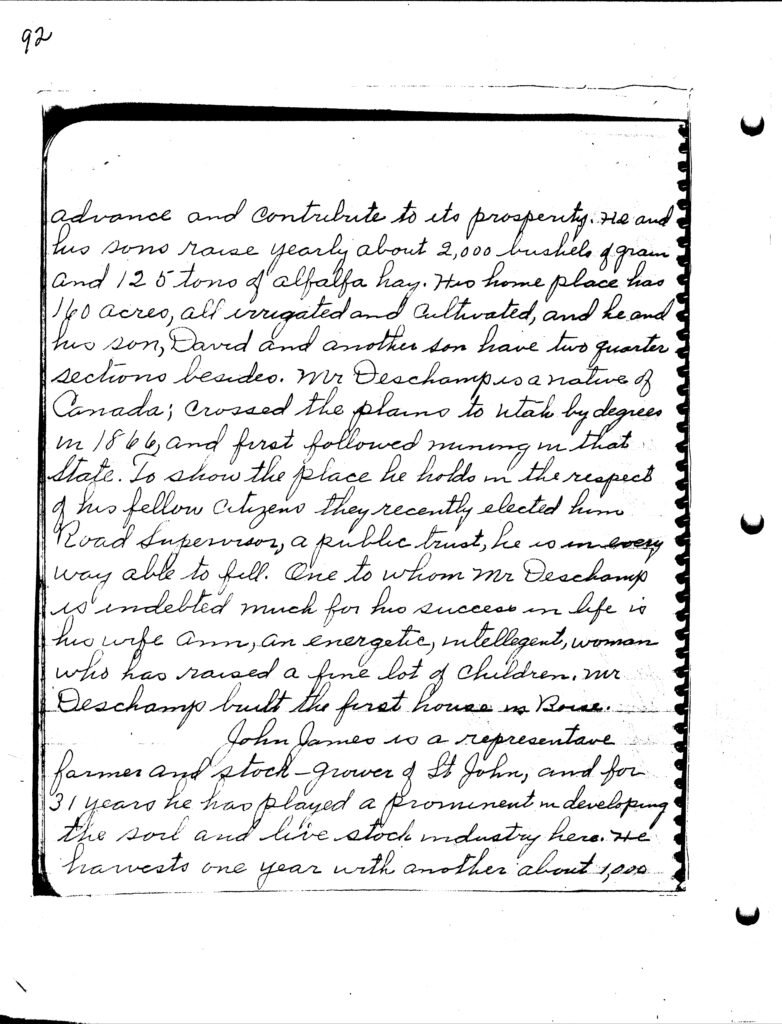 92
advance and contribute to its prosperity. He and
his sons raise yearly about 2,000 bushels of grain
and 125 tons of alfalfa hay. His home place has
160 acres, all irrigated and cultivated, and he and
his son, David and another son have two quarter
sections besides. Mr Deschamp is a native of
Canada; crossed the plains to Utah by degrees
in 1866, and first followed mining in that
State. To show the place he holds in the respect
of his fellow citizens they recently elected him
Road Supervisor, a public trust, he is in every
way able to fill. One to whom Mr Deschamp
is indebted much for his success in life is
his wife Ann, an energetic, intellegent, woman
who has raised a fine lot of children. Mr
Deschamp built the first house in Boise.
John James is a representave
farmer and stock-grower of St John, and for
31 years he has played a prominent in developing
the soil and live stock industry here. He
harvests one year with another about 1,000